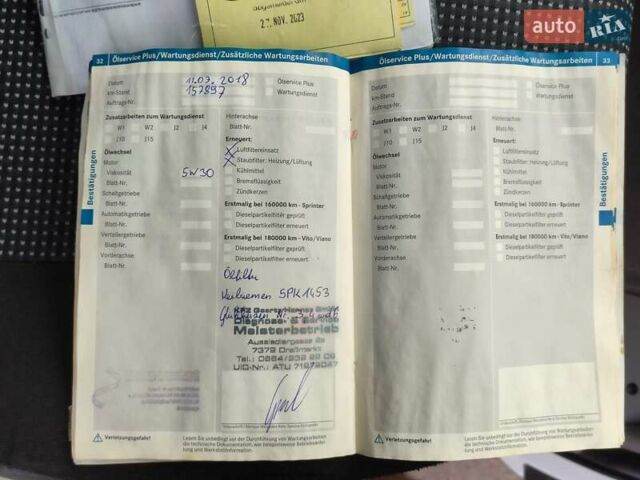 abgemeldet am
27. NOV. 2023
auto RIA.com
32 Ölservice Plus/Wartungsdienst/Zusätzliche Wartungsarbeiten
Datum 11.07.2018 Ölservice Plus
km-Stand 157897 Wartungsdienst
Auftrags-Nr.
Zusatzarbeiten zum Wartungsdienst
W1 W2 J2 J4
J10 J15
Ölwechsel
Motor
Viskosität 5W30
Blatt-Nr.
Schaltgetriebe
Blatt-Nr.
Automatikgetriebe
Blatt-Nr.
Verteilergetriebe
Blatt-Nr.
Vorderachse
Blatt-Nr.
Hinterachse
Blatt-Nr.
Erneuert:
Luftfiltereinsatz
Staubfilter: Heizung/Lüftung
Kühlmittel
Bremsflüssigkeit
Zündkerzen
Erstmalig bei 160000 km - Sprinter
Dieselpartikelfilter geprüft
Dieselpartikelfilter erneuert
Erstmalig bei 180000 km - Vito/Viano
Dieselpartikelfilter geprüft
Dieselpartikelfilter erneuert
Ölfilter
Keilriemen 5PK1453
Meisterbetrieb
7372 Draßmarkt
UID-Nr.: ATU
Bestätigungen
Verletzungsgefahr!
Lesen Sie unbedingt vor der Durchführung von Wartungsarbeiten
die technische Dokumentation, wie beispielsweise Betriebsanlei-
tung und Werkstattinformation.
Ölservice Plus/Wartungsdienst/Zusätzliche Wartungsarbeiten 33
Datum Ölservice Plus
km-Stand Wartungsdienst
Auftrags-Nr.
Zusatzarbeiten zum Wartungsdienst
W1 W2 J2 J4
J10 J15
Ölwechsel
Motor
Viskosität
Blatt-Nr.
Schaltgetriebe
Blatt-Nr.
Automatikgetriebe
Blatt-Nr.
Verteilergetriebe
Blatt-Nr.
Vorderachse
Blatt-Nr.
Hinterachse
Blatt-Nr.
Erneuert:
Luftfiltereinsatz
Staubfilter: Heizung/Lüftung
Kühlmittel
Bremsflüssigkeit
Zündkerzen
Erstmalig bei 160000 km - Sprinter
Dieselpartikelfilter geprüft
Dieselpartikelfilter erneuert
Erstmalig bei 180000 km - Vito/Viano
Dieselpartikelfilter geprüft
Dieselpartikelfilter erneuert
Bestätigungen
Verletzungsgefahr!
Lesen Sie unbedingt vor der Durchführung von Wartungsarbeiten
die technische Dokumentation, wie beispielsweise Betriebsanlei-
tung und Werkstattinformation.